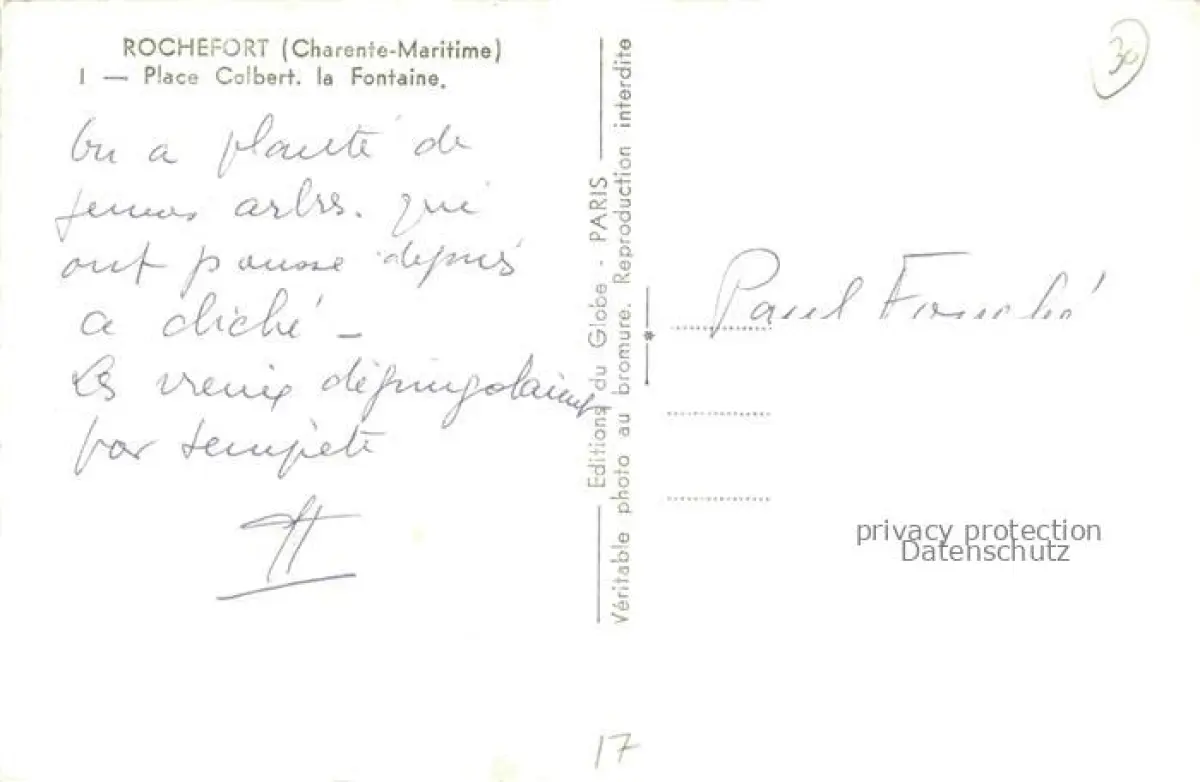 ROCHEFORT (Charente-Maritime)
1 — Place Colbert. la Fontaine.
On a planté de
jeunes arbres. qui
ont pousse depuis
ce cliché —
les vieux dégringolaient
par tempête
H
Editions du Globe - PARIS
Véritable photo au bromure. Reproduction interdite
30
Paul Fouché
privacy protection
Datenschutz
17